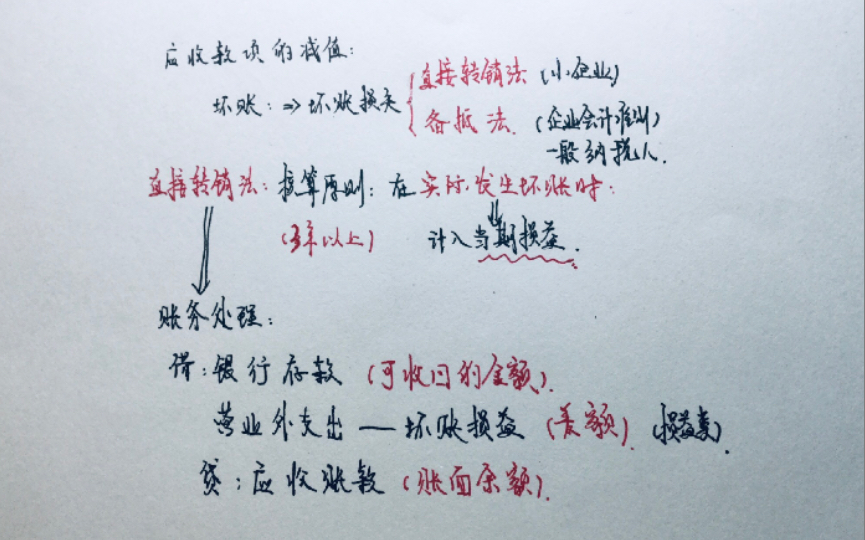 应收款项的减值:
坏账: => 坏账损失 { 直接转销法 (小企业)
备抵法. (企业会计准则)
一般纳税人.
直接转销法: 核算原则: 在实际发生坏账时:
(3年以上) 计入当期损益.
账务处理:
借: 银行存款 (可收回的金额).
营业外支出 — 坏账损益 (差额). (损益类).
贷: 应收账款 (账面余额).